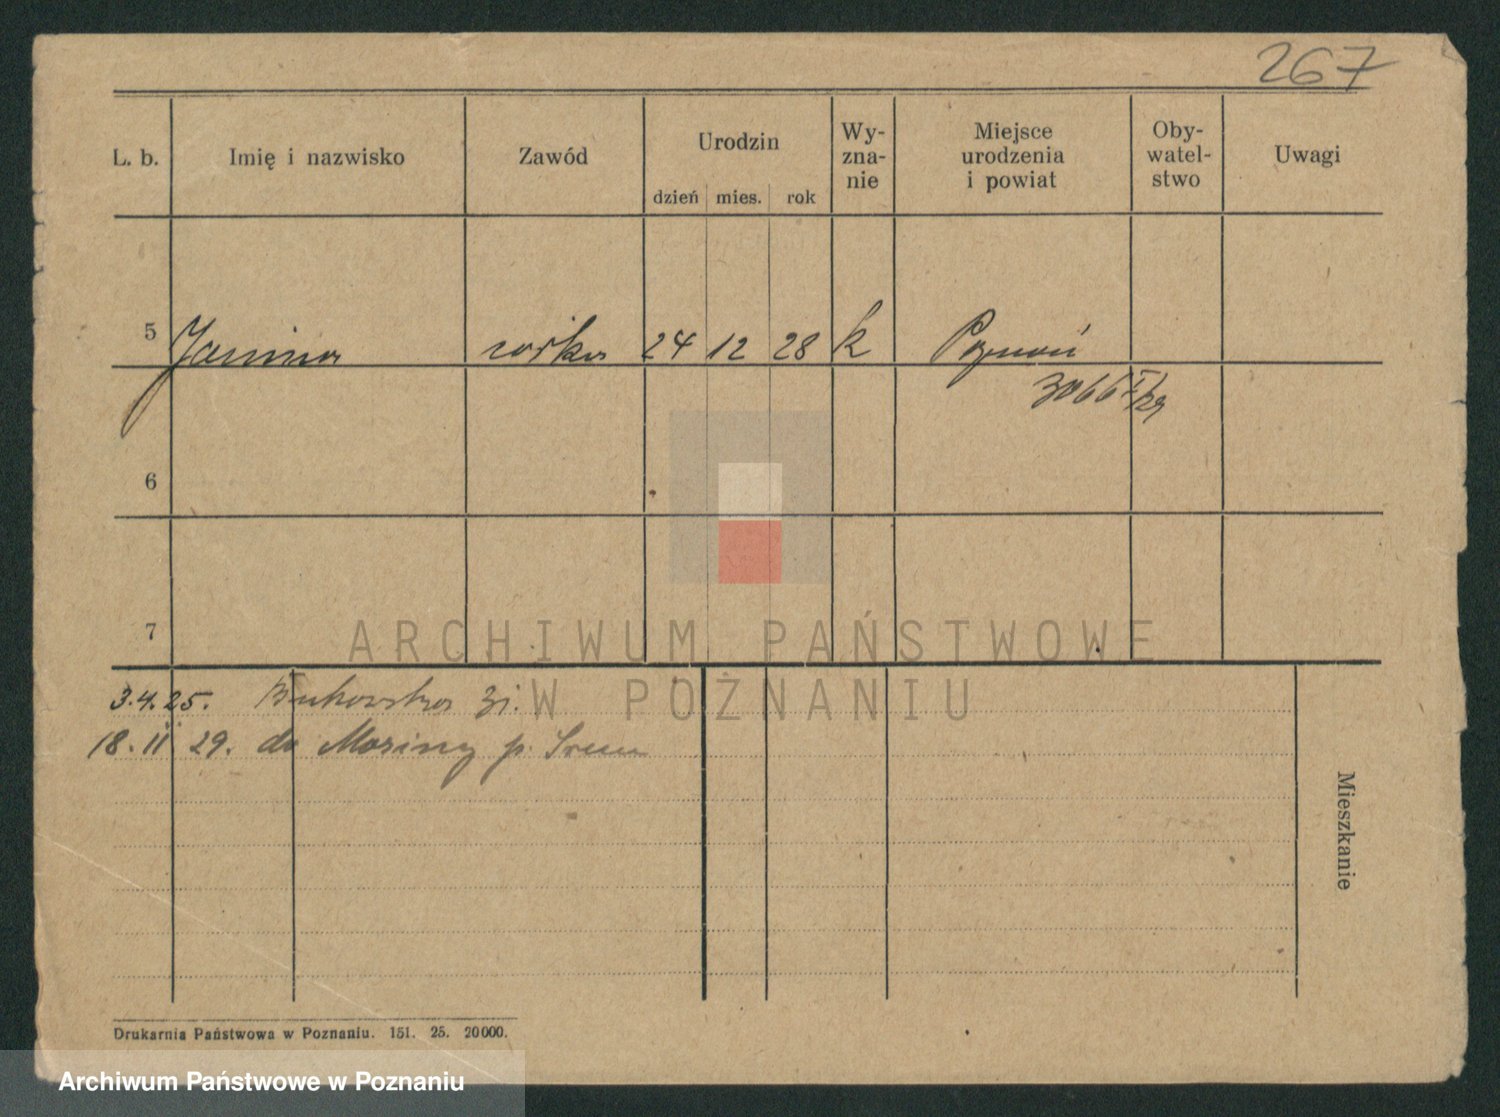 267
L. b. Imię i nazwisko Zawód Urodzin dzień mies. rok Wy-zna-nie Miejsce urodzenia i powiat Oby-watel-stwo Uwagi
5 Janina córka 24 12 28 k Poznań
3066 I/29
6
7
ARCHIWUM PAŃSTWOWE
W POZNANIU
3.4.25. Bukowska 31.
18. II 29. do Mosiny p. Śrem
Mieszkanie
Drukarnia Państwowa w Poznaniu. 151. 25. 20000.
Archiwum Państwowe w Poznaniu